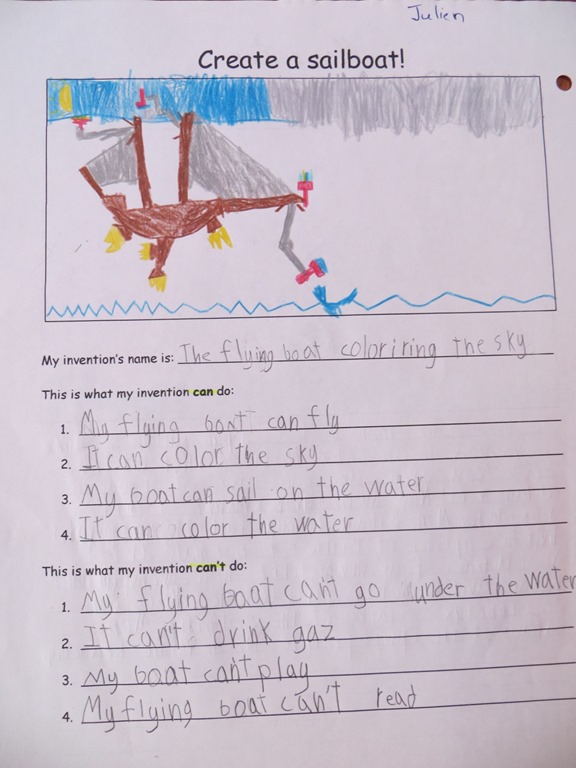 Julien
Create a sailboat!
My invention's name is: The flying boat coloriring the sky
This is what my invention can do:
1. My flying boat can fly
2. It can color the sky
3. My boat can sail on the water
4. It can color the water
This is what my invention can't do:
1. My flying boat can't go under the water
2. It can't drink gaz
3. My boat can't play
4. My flying boat can't read